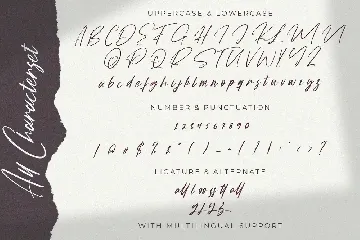 All Characterset
UPPERCASE & LOWERCASE
A B C D E F G H I J K L M N
O P Q R S T U V W X Y Z
a b c d e f g h i j k l m n o p q r s t u v w x y z
NUMBER & PUNCTUATION
1 2 3 4 5 6 7 8 9 0
LIGATURE & ALTERNATE
WITH MULTILINGUAL SUPPORT